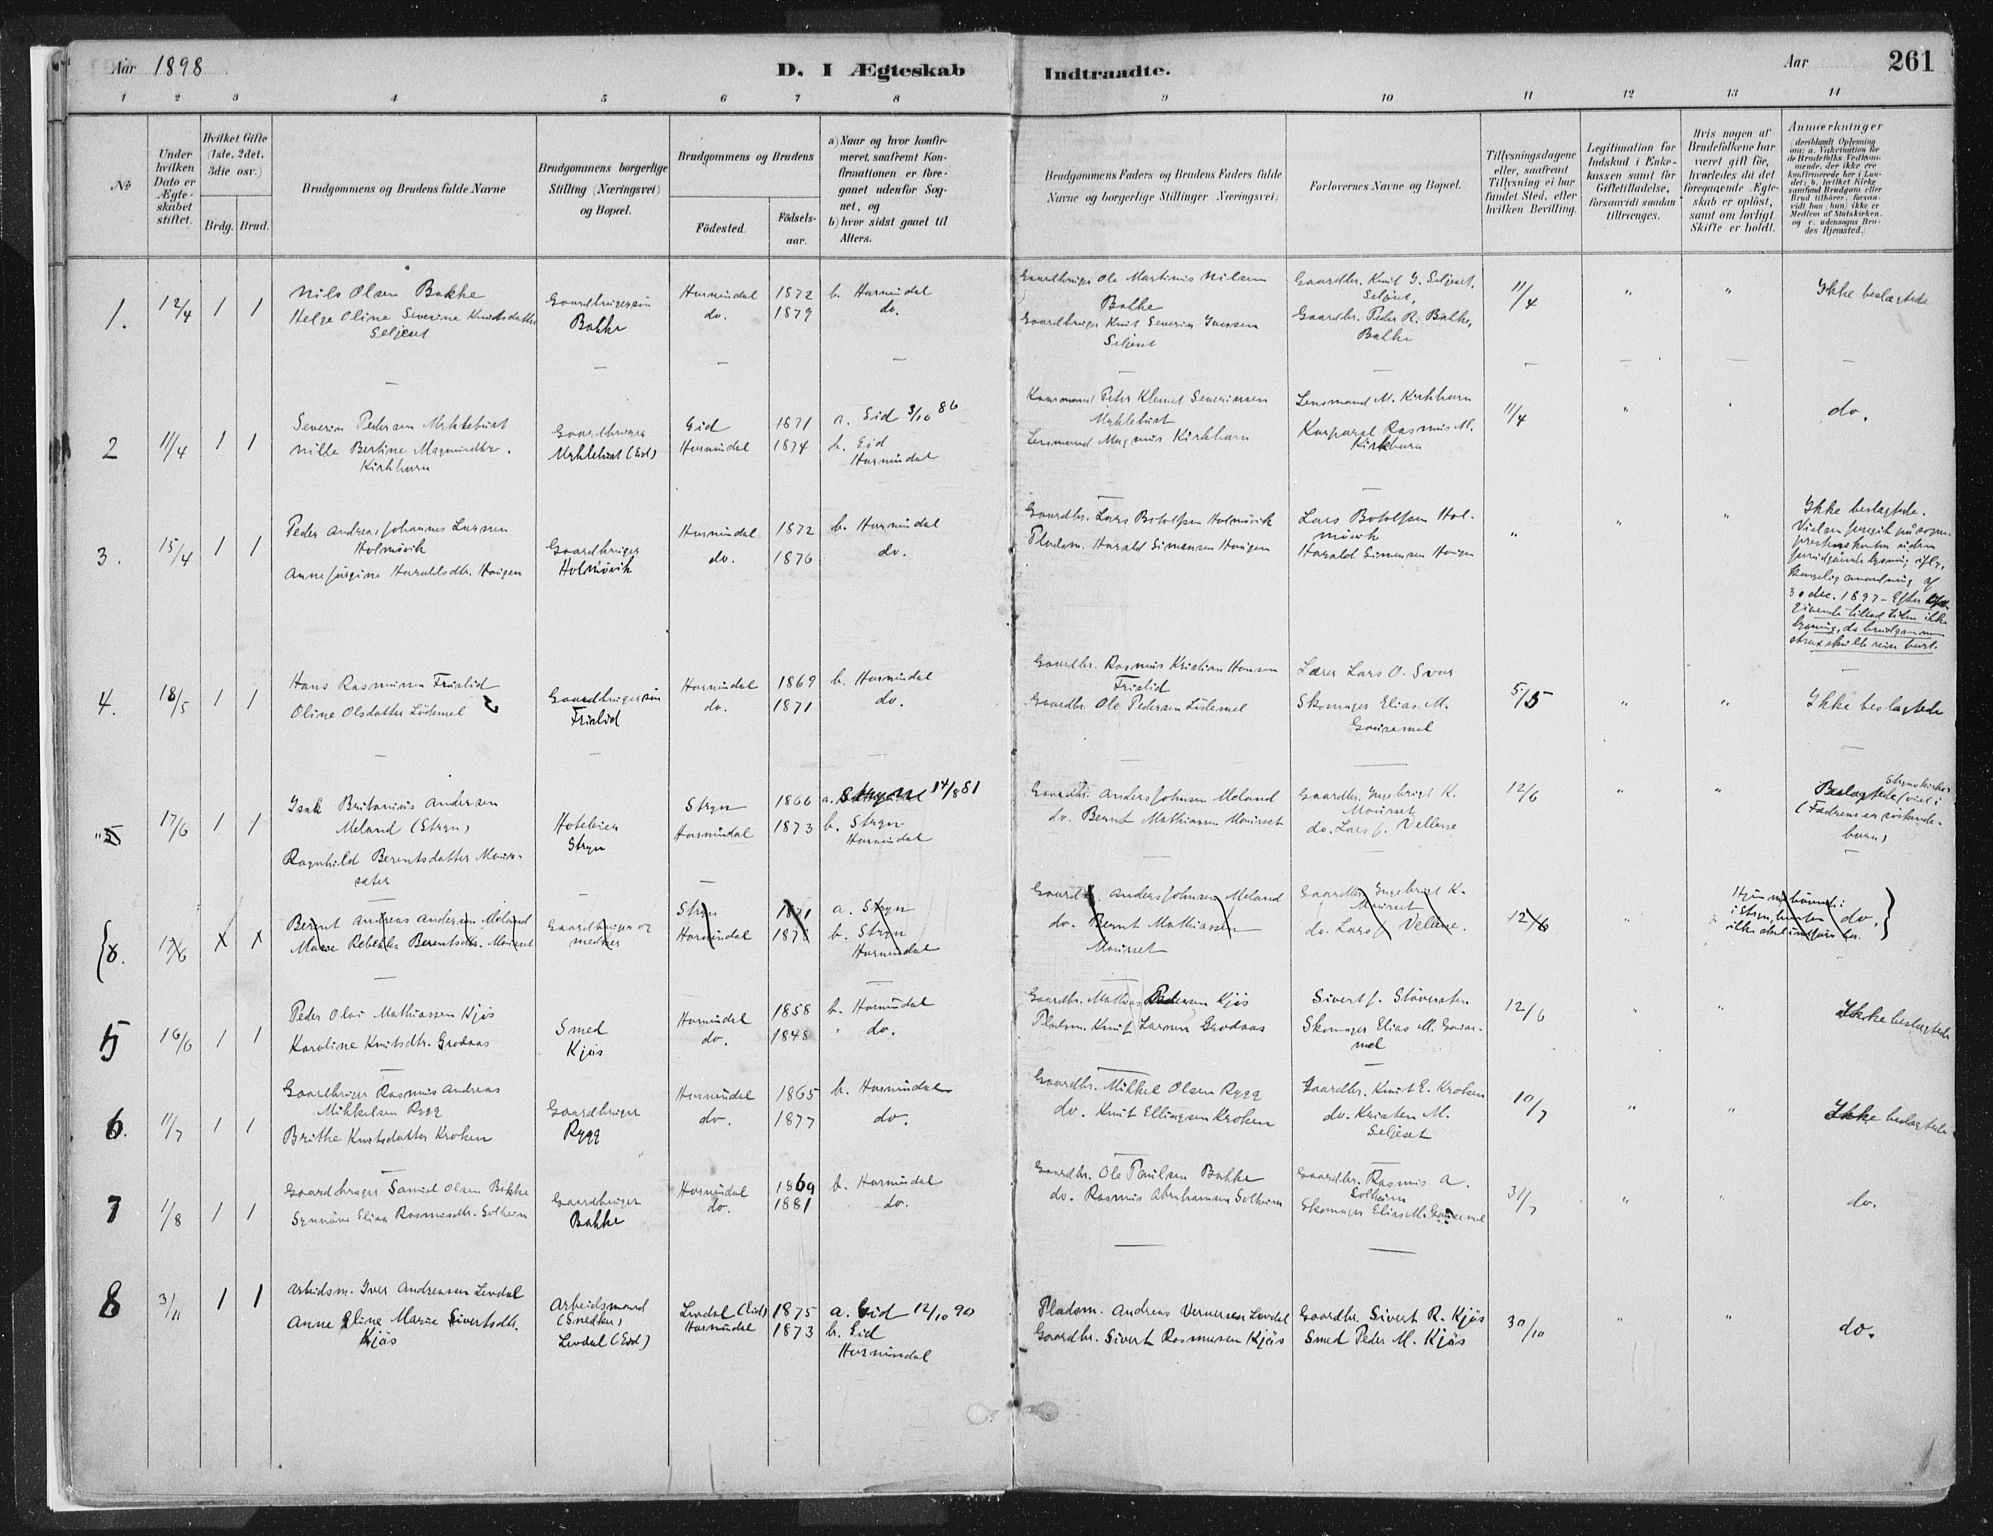 Aar 1898
D. I Ægteskab Indtraadte.
Aar 261
1 2 3 4 5 6 7 8 9 10 11 12 13 14
No
Under hvilken Dato er Ægteskabet stiftet.
Hvilket Gifte (1ste. 2det. 3die osv.)
Brdg. Brud.
Brudgommens og Brudens fulde Navne
Brudgommens borgerlige Stilling (Næringsvei) og Bopæl.
Brudgommens og Brudens
Fødested.
Fødselsaar.
a) Naar og hvor konfirmeret, saafremt Konfirmationen er foregaaet udenfor Sognet, og
b) hvor sidst gaaet til Alters.
Brudgommens Faders og Brudens Faders fulde Navne og borgerlige Stillinger (Næringsvei)
Forlovernes Navne og Bopæl.
Tillysningsdagene eller, saafremt Tillysning ei har fundet Sted, efter hvilken Bevilling.
Legitimation for Indskud i Enkekassen samt for Giftetilladelse, forsaavidt saadan tiltrænges.
Hvis nogen af Brudefolkene har været gift før, hvorledes da det foregaaende Ægteskab er opløst, samt om lovligt Skifte er holdt.
Anmærkninger
1. 12/4 1 1
Nils Olsen Bakke
Helge Oline Severine Knutsdatter
Seljeset
Gaardbrugersøn
Bakke
Hornindal 1872 b. Hornindal
do. 1879 do.
Gaardbruger Ole Martinus Nilsen
Bakke
Gaardbruger Knut Severin Iversen
Seljeset
Gaardbr. Knut G. Seljeset,
Seljeset,
Gaardbr. Peder R. Bakke,
Bakke
11/4 " "
Ikke beslægtede
2 11/4 1 1
Severin Pedersen Myklebust
Nille Bertine Magnusdtr.
Kirkhorn
Gaardbruger
Myklebust (Eid)
Eid 1871 a. Eid 3/10 86
Hornindal 1874 b. Eid
Hornindal
Peter Klemet Severinsen
Myklebust
Lensmand Magnus Kirkhorn
Lensmand M. Kirkhorn
Korporal Rasmus M.
Kirkhorn
11/4 "
do.
3. 15/4 1 1
Peder Andreas Johannes Larsen
Holmøvik
Anne Jørgine Haraldsdtr. Haugen
Gaardbruger
Holmøvik
Hornindal 1872 b. Hornindal
do. 1876 do.
Gaardbr. Lars Botolfsen Holmøvik
Pladsm. Harald Simensen Haugen
Lars Botolfsen Holmøvik
Harald Simensen Haugen
" " "
Ikke beslægtede.
Vielsen foregik på sogneprestens kontor uden
forudgående lysning ifølg.
kongelig anordning af
30 dec. 1897 - Efter
4. 18/5 1 1
Hans Rasmussen Frislid
Oline Olsdatter Lødemel
Gaardbrugersøn
Frislid
Hornindal 1869 b. Hornindal
do. 1871 do.
Gaardbr. Rasmus Kristian Hansen
Frislid
Gaardbr. Ole Pedersen Lødemel
Lærer Lars O. Svor
Skomager Elias M.
Gausemel
5/5 " "
Ikke beslægtede
"5 17/6 1 1
Isak Britanius Andersen
Meland (Stryn)
Ragnhild Berentsdatter Mourssæter
Hoteleier
Stryn
Stryn 1866 a. Stryn 14/8 81
Hornindal 1873 b. Stryn
Hornindal
Gaardbr. Anders Johnsen Meland
do. Bernt Mathiassen Mourset
Gaardbr. Ingebrigt K.
Mourset
do. Lars J. Vellene
12/6 " "
Beslægtede (viet i Strynskirke)
(Fædrene er søskendebarn)
6. 17/6
Berent Andreas Andersen Meland
Marie Rebekka Berentsdtr. Mourset
Gaardbruger og
Stryn 1871 a. Stryn
Hornindal 1878 b. Stryn
Hornindal
Gaardbr. Anders Johnsen Meland
do. Bernt Mathiassen
Mourset
Gaardbr. Ingebrigt K.
Mourset
do. Lars J. Vellene.
12/6 "
do.
5 16/6 1 1
Peder Olai Mathiassen Kjøs
Karoline Knutsdtr. Grodaas
Smed
Kjøs
Hornindal 1858 b. Hornindal
do. 1848 " do.
Gaardbr. Mathias Pedersen Kjøs
Pladsm. Knut Larsen Grodaas
Sivert J. Støversten
Skomager Elias M. Gausemel
12/6 " "
Ikke beslægtede
6. 11/7 1 1
Gaardbruger Rasmus Andreas
Mikkelsen Rygg
Brithe Knutsdatter Kroken
Gaardbruger
Rygg
Hornindal 1865 b. Hornindal
do. 1877 do.
Gaardbr. Mikkel Olsen Rygg
do. Knut Ellingsen Kroken
Gaardbr. Knut E. Kroken
do. Kristen M.
Seljeset
10/7 " "
Ikke beslægtede
7 1/8 1 1
Gaardbruger Samuel Olsen Bakke
Synnøve Elisa Rasmusdtr. Solheim
Gaardbruger
Bakke
Hornindal 1869 b. Hornindal
do. 1881 do.
Gaardbr. Ole Paulsen Bakke
do. Rasmus Abrahamsen Solheim
Gaardbr. Rasmus A.
Solheim
Skomager Elias M. Gausemel
31/7 " "
do.
8 3/11 1 1
Arbeidsm. Iver Andreassen Levdal
Anne Eline Marie Sivertsdtr.
Kjøs
Arbeidsmand
(Snedker)
Levdal (Eid)
Levdal (Eid) 1875 a. Eid 12/10 90
Hornindal 1873 b. Eid
Hornindal
Pladsm. Andreas Verversen Levdal
Gaardbr. Sivert Rasmussen Kjøs
Gaardbr. Sivert R. Kjøs
Smed Peder M. Kjøs
30/10 " "
do.